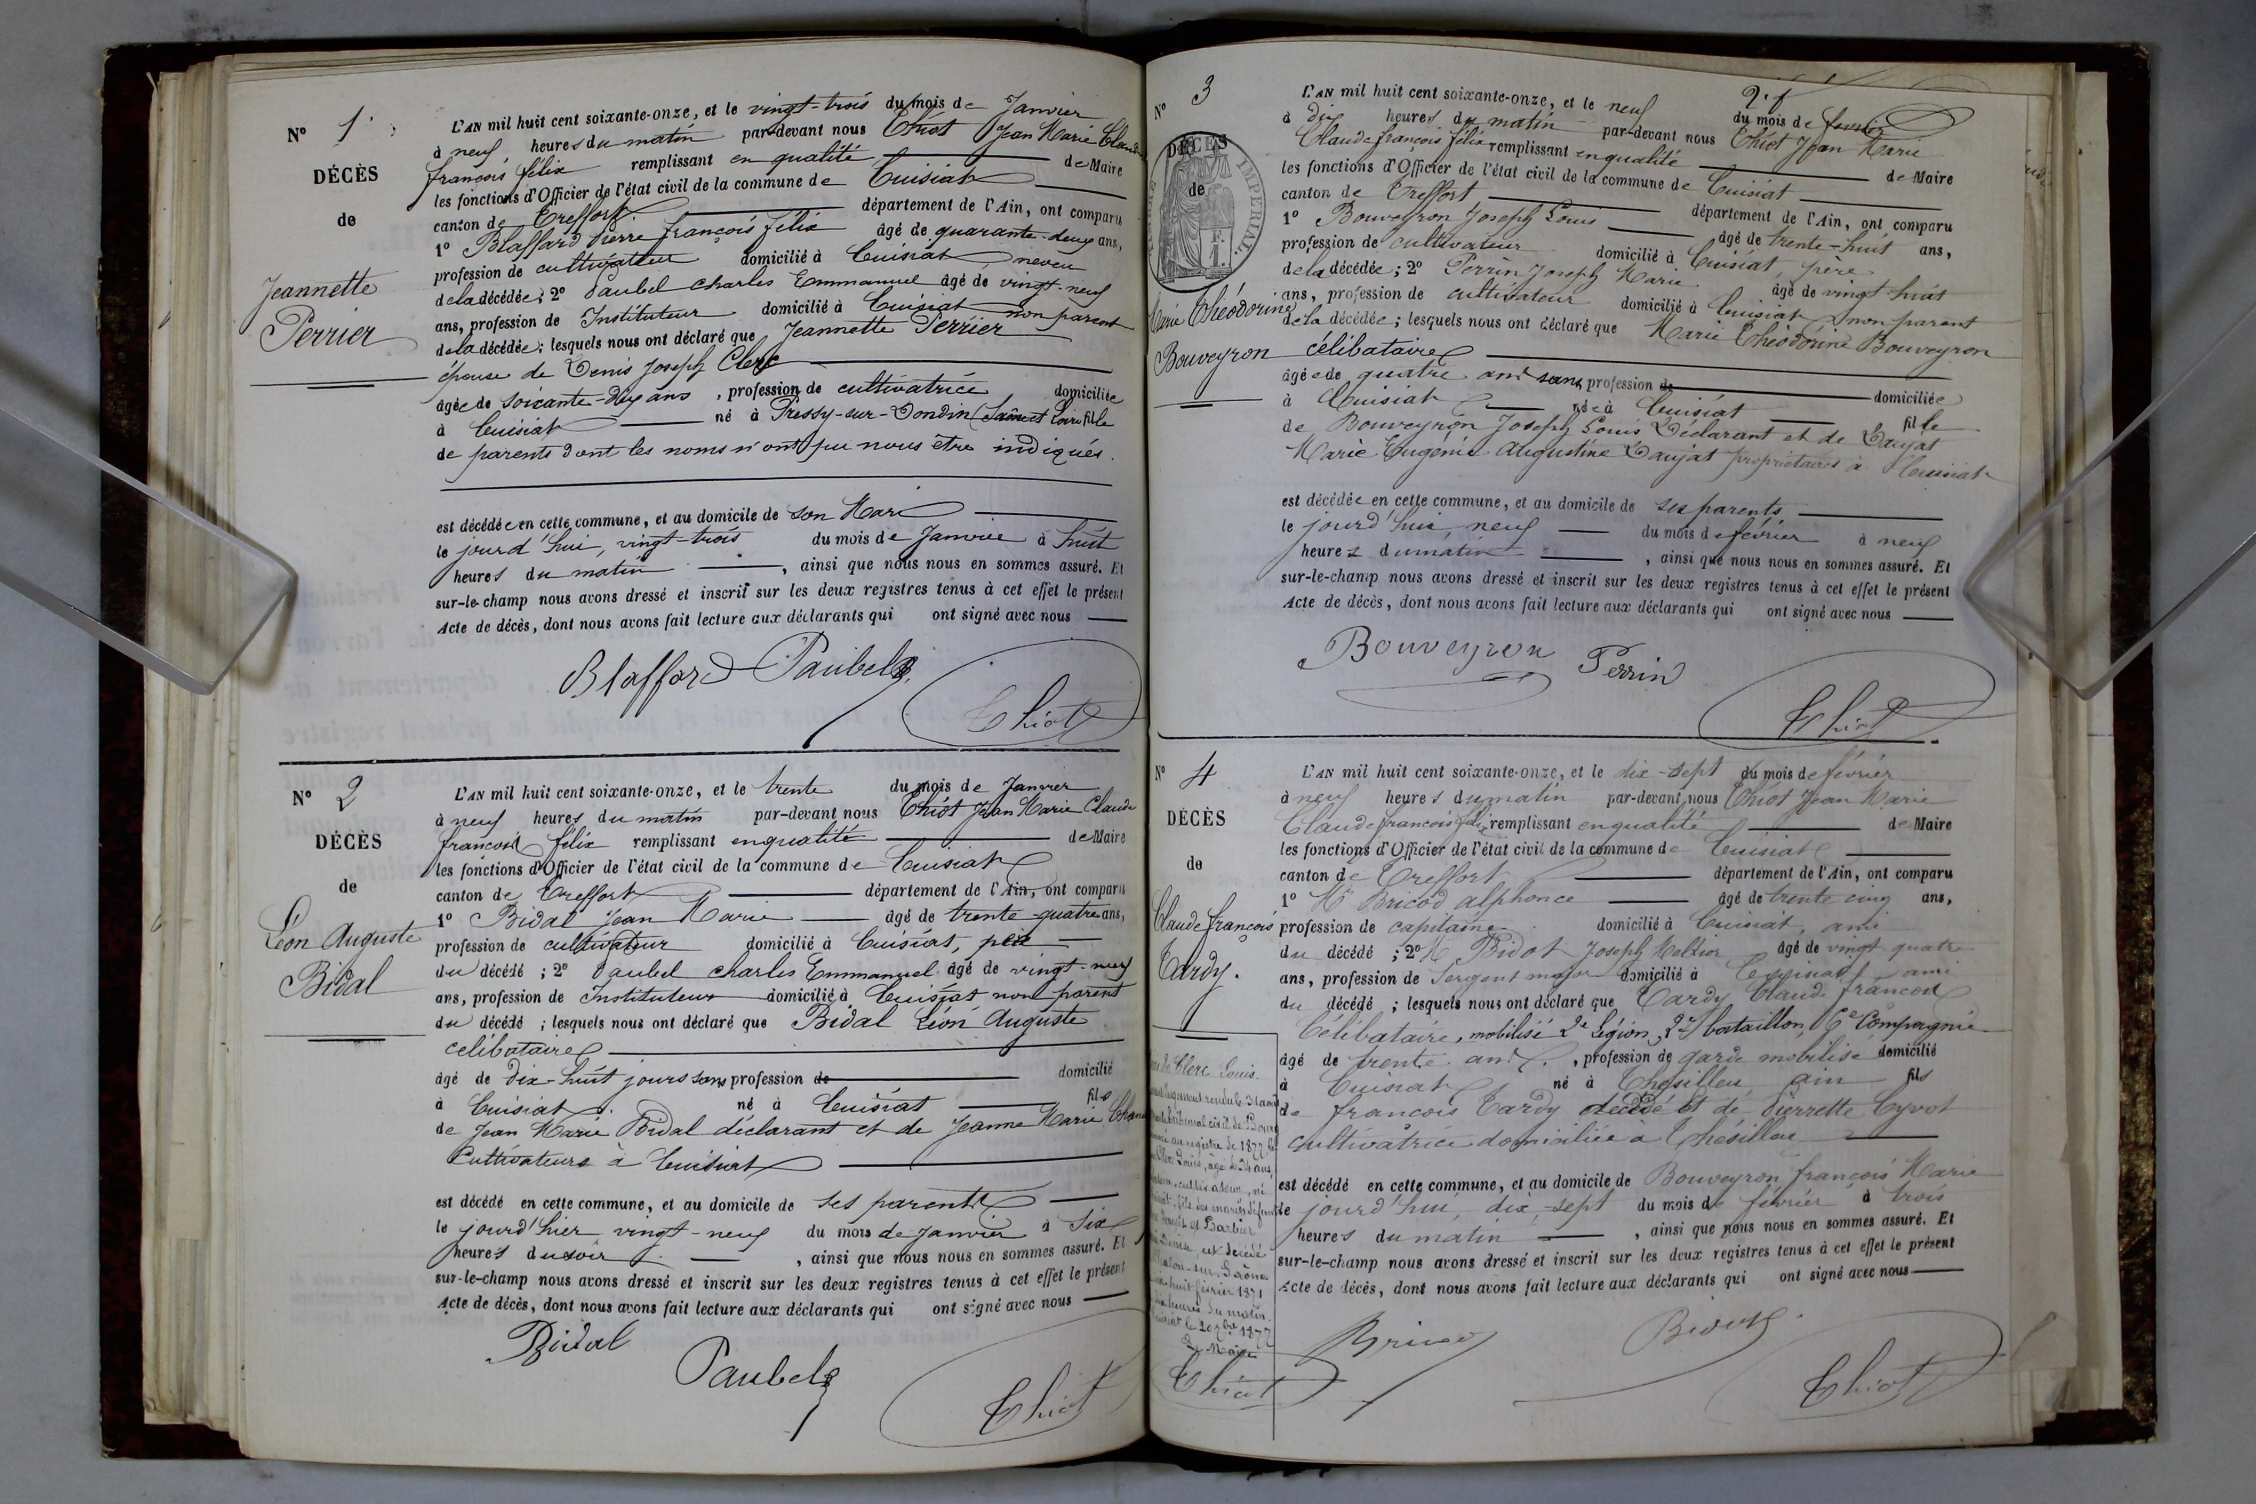 N° 1
DÉCÈS
de
Jeannette
Perrier
L'AN mil huit cent soixante-onze, et le vingt-trois du mois de Janvier
à neuf heures du matin par-devant nous Thiot Jean Marie Claude
françois félix remplissant en qualité de Maire
les fonctions d'Officier de l'état civil de la commune de Cuisiat
canton de Treffort département de l'Ain, ont comparu
1° Blaffard Pierre françois félix âgé de quarante-deux ans,
profession de cultivateur domicilié à Cuisiat, neveu
de la décédée; 2° Paubel Charles Emmanuel âgé de vingt-neuf
ans, profession de Instituteur domicilié à Cuisiat non parent
de la décédée; lesquels nous ont déclaré que Jeannette Perrier
épouse de Denis Joseph Clerc
âgée de soixante-dix ans, profession de cultivatrice domiciliée
à Cuisiat né à Pressy-sur-Dondin (Saône et Loire) fille
de parents dont les noms n'ont pu nous être indiqués.
est décédée en cette commune, et au domicile de son Mari
le jourd'hui, vingt-trois du mois de Janvier à huit
heures du matin, ainsi que nous nous en sommes assuré. Et
sur-le-champ nous avons dressé et inscrit sur les deux registres tenus à cet effet le présent
Acte de décès, dont nous avons fait lecture aux déclarants qui ont signé avec nous
Blaffard Paubel
Thiot
N° 2
DÉCÈS
de
Léon Auguste
Bidal
L'AN mil huit cent soixante-onze, et le trente du mois de Janvier
à neuf heures du matin par-devant nous Thiot Jean Marie Claude
françois félix remplissant en qualité de Maire
les fonctions d'Officier de l'état civil de la commune de Cuisiat
canton de Treffort département de l'Ain, ont comparu
1° Bidal Jean Marie âgé de trente-quatre ans,
profession de cultivateur domicilié à Cuisiat, père
du décédé; 2° Paubel Charles Emmanuel âgé de vingt-neuf
ans, profession de Instituteur domicilié à Cuisiat non parent
du décédé; lesquels nous ont déclaré que Bidal Léon Auguste
célibataire
âgé de dix-huit jours sans profession de domicilié
à Cuisiat né à Cuisiat fils
de Jean Marie Bidal déclarant et de Jeanne Marie
Cultivateurs à Cuisiat
est décédé en cette commune, et au domicile de ses parents
le jourd'hier vingt-neuf du mois de Janvier à six
heures du soir, ainsi que nous nous en sommes assuré. Et
sur-le-champ nous avons dressé et inscrit sur les deux registres tenus à cet effet le présent
Acte de décès, dont nous avons fait lecture aux déclarants qui ont signé avec nous
Bidal
Paubel
Thiot
N° 3
DÉCÈS
de
IMPERIAL.
Marie Théodorine
Bouveyron
2. f
L'AN mil huit cent soixante-onze, et le neuf du mois de février
à dix heures du matin par-devant nous Thiot Jean Marie
Claude françois félix remplissant en qualité de Maire
les fonctions d'Officier de l'état civil de la commune de Cuisiat
canton de Treffort département de l'Ain, ont comparu
1° Bouveyron Joseph Louis âgé de trente-huit ans,
profession de cultivateur domicilié à Cuisiat, père
de la décédée; 2° Perrin Joseph Marie âgé de vingt-huit
ans, profession de cultivateur domicilié à Cuisiat non parent
de la décédée; lesquels nous ont déclaré que Marie Théodorine Bouveyron
célibataire
âgée de quatre ans sans profession de domiciliée
à Cuisiat née à Cuisiat fille
de Bouveyron Joseph Louis Déclarant et de Daujat
Marie Eugénie Augustine Daujat propriétaires à Cuisiat
est décédée en cette commune, et au domicile de ses parents
le jourd'hui neuf du mois de février à neuf
heures du matin, ainsi que nous nous en sommes assuré. Et
sur-le-champ nous avons dressé et inscrit sur les deux registres tenus à cet effet le présent
Acte de décès, dont nous avons fait lecture aux déclarants qui ont signé avec nous
Bouveyron Perrin
Thiot
N° 4
DÉCÈS
de
Claude françois
Tardy.
L'AN mil huit cent soixante-onze, et le dix-sept du mois de février
à neuf heures du matin par-devant nous Thiot Jean Marie
Claude françois félix remplissant en qualité de Maire
les fonctions d'Officier de l'état civil de la commune de Cuisiat
canton de Treffort département de l'Ain, ont comparu
1° Mr Bricod alphonce âgé de trente cinq ans,
profession de capitaine domicilié à Cuisiat, ami
du décédé; 2° M Bidot Joseph âgé de vingt quatre
ans, profession de Sergent major domicilié à ami
du décédé; lesquels nous ont déclaré que Tardy Claude françois
Célibataire, mobilisé 2e Légion, 2e bataillon, 6e Compagnie
âgé de trente ans, profession de garde mobilisé domicilié
à Cuisiat né à Chésilleu ain fils
de françois Tardy décédé et de Pierrette Cyvot
cultivatrice domiciliée à Chésilleu
est décédé en cette commune, et au domicile de Bouveyron françois Marie
le jourd'hui dix-sept du mois de février à trois
heures du matin, ainsi que nous nous en sommes assuré. Et
sur-le-champ nous avons dressé et inscrit sur les deux registres tenus à cet effet le présent
Acte de décès, dont nous avons fait lecture aux déclarants qui ont signé avec nous
Bricod
Bidot
Thiot
Clerc Louis
jugement rendu le 31
tribunal civil de Bourg
registre de 1877
Clerc Louis, âgé de 24 ans,
cultivateur, né
fils des mariés
Joseph et Barbier
est décédé
sur-Saône
huit février 1871
heures du matin.
Cuisiat le 20 1877
Le Maire
Thiot